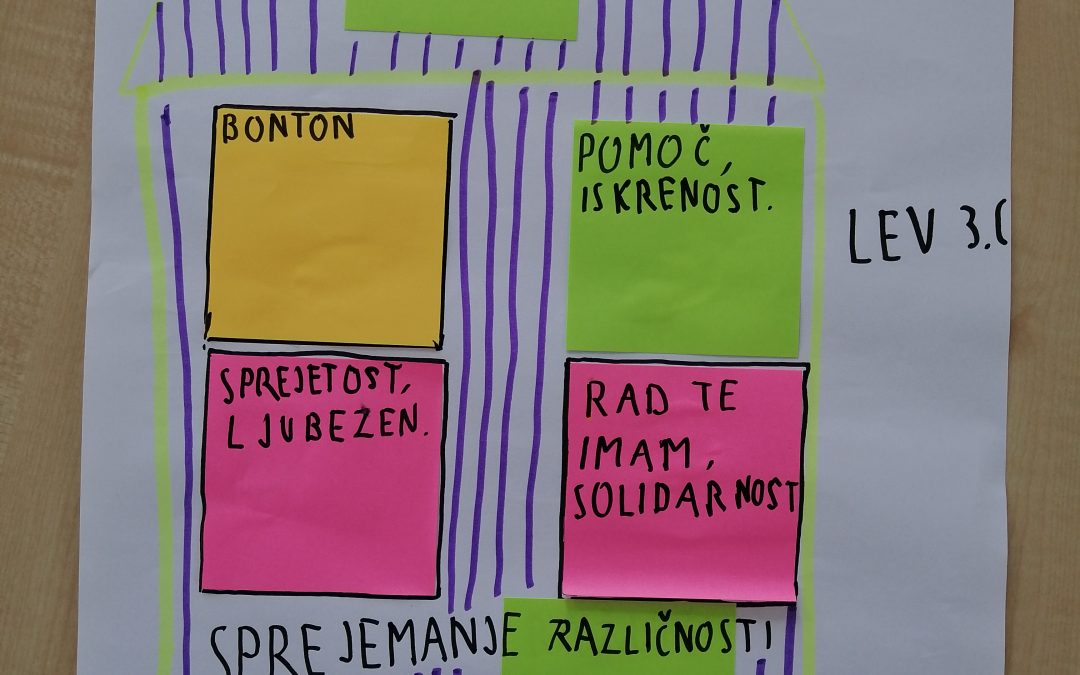 BONTON
POMOČ,
ISKRENOST.
LEV 3.
SPREJETOST,
LJUBEZEN.
RAD TE
IMAM,
SOLIDARNOST
SPREJEMANJE RAZLIČNOSTI